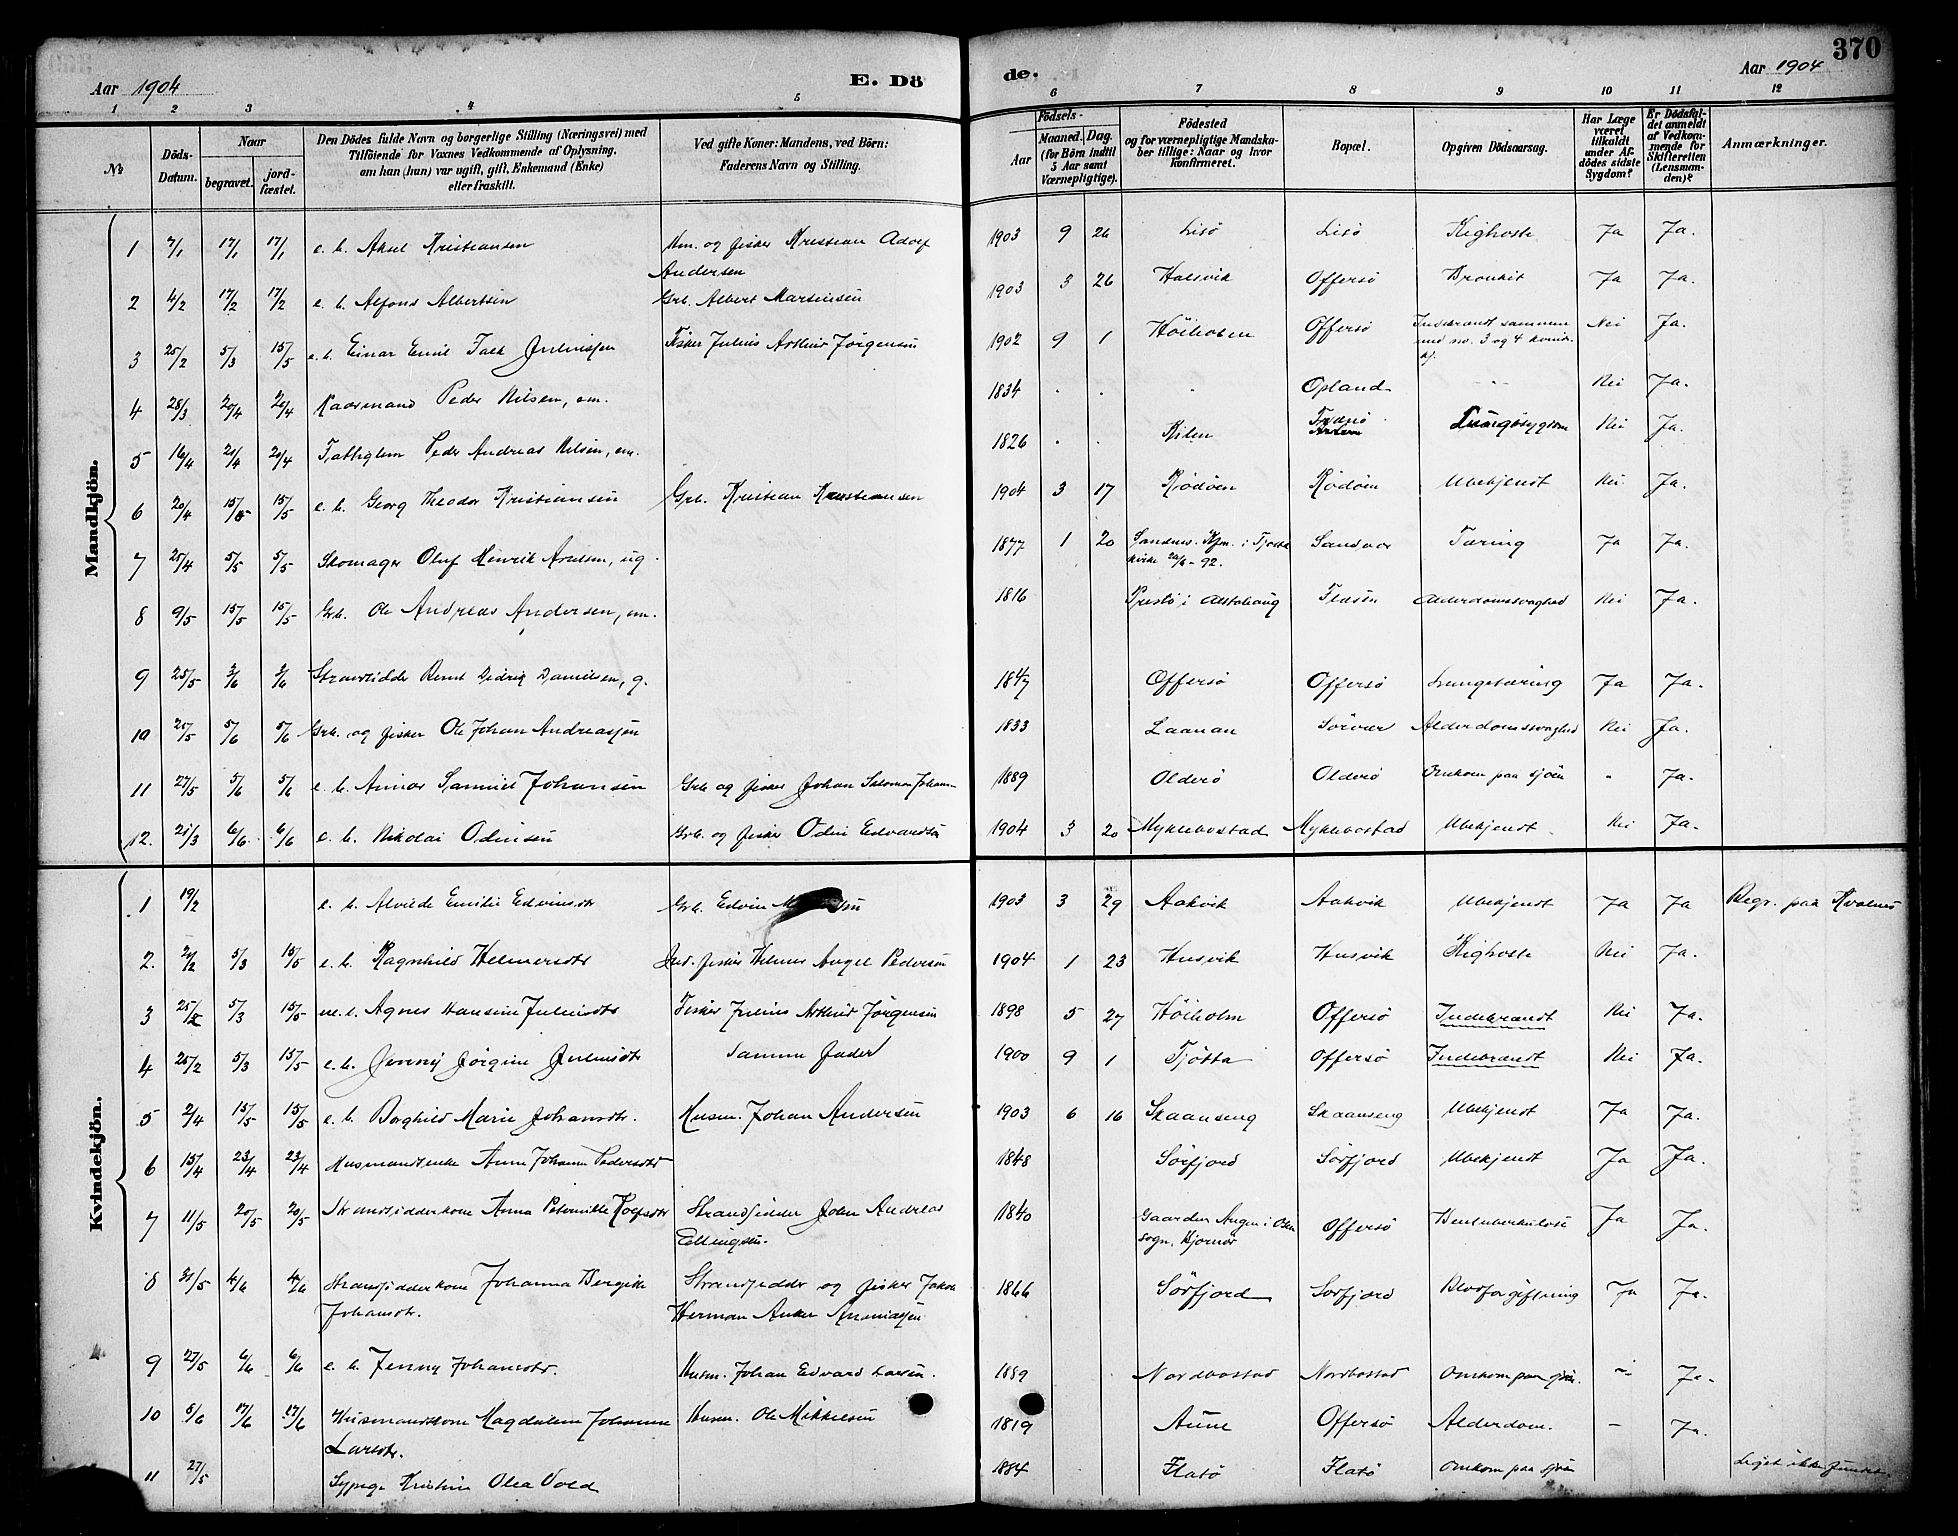 370
Aar 1904 E. Dö de. Aar 1904
1 2 3 4 5 6 7 8 9 10 11 12
No Döds-Datum. Naar begravet. jordfæstet. Den Dödes fulde Navn og borgerlige Stilling (Næringsvei) med Tilföiende for Voxnes Vedkommende af Oplysning, om han (hun) var ugift, gift, Enkemand (Enke) eller fraskilt. Ved gifte Koner: Mandens, ved Börn: Faderens Navn og Stilling. Födsels- Aar Maaned. Dag. (for Börn indtil 5 Aar samt Værnepligtige). Födested og for værnepligtige Mandskaber tillige: Naar og hvor konfirmeret. Bopæl. Opgiven Dödsaarsag. Har Læge været tilkaldt under Afdödes sidste Sygdom? Er Dödsfaldet anmeldt af Vedkommende for Skifteretten (Lensmanden)? Anmærkninger.
Mandkjön.
1 7/1 17/1 17/1 e. b. Aksel Kristiansen Hm. og fisker Kristian Adolf 1903 9 26 Lisö Lisö Kighoste Ja Ja.
Andersen
2 4/2 17/2 17/2 e. b. Alfons Albertsen Grb. Albert Martinsen 1903 3 26 Halsvik Offersö Bronkit Ja Ja.
3 25/2 5/3 15/5 e. b. Einar Emil Falk Juliussen Fisker Julius Arthur Jörgensen 1902 9 1 Höiholm Offersö Indebrandt sammen Nei Ja.
med no. 3 og 4 kvindekj.
4 28/3 20/4 20/4 Kaarmand Peder Nilsen, em. 1834 . . . Opland - - Nei Ja.
5 16/4 21/4 21/4 Fattiglem Peder Andreas Nilsen, em. 1826 . . Kilen Lungesygdom Nei Ja.
6 20/4 15/5 15/5 e. b. Georg Theodor Kristiansen Grb. Kristian Kristiansen 1904 3 17 Rödöen Rödöen Ubekjendt Nei Ja.
7 25/4 5/5 5/5 Skomager Oluf Henrik Arntsen, ug. 1877 1 20 Sandnes. Kfm. i Tjötta Sandvær Tæring Ja Ja.
kirke 26/6 - 92.
8 9/5 15/5 15/5 Grb. Ole Andreas Andersen, em. 1816 Prestö i Alstahaug Flæsen Alderdomssvaghed Nei Ja.
9 25/5 3/6 3/6 Strandsidder Bernt Dedrig Danielsen, g. 1847 Offersö Offersö Lungetæring Ja Ja.
10 25/5 5/6 5/6 Grb. og fisker Ole Johan Andreassen 1833 Laanan Sörvær Alderdomssvaghed Nei Ja.
11 27/5 5/6 5/6 e. b. Annar Samuel Johansen Grb og fisker Johan Salomon Johans- 1889 Olderö Olderö Omkom paa sjöen " Ja.
12. 21/3 6/6 6/6 e. b. Nikolai Odinsen Grb. og fisker Odin Edvardsen 1904 3 20 Myklebostad Myklebostad Ubekjendt Nei Ja.
Kvindekjön.
1 19/2 e. b. Alvilde Emilie Edvinsdtr Grb. Edvin 1903 3 29 Aakvik Aakvik Ubekjendt Ja Ja Begr. paa Kvalnes
2. 21/2 5/3 15/5 e. b. Ragnhild Helmersdtr Ind. fisker Helmer Angel Pedersen 1904 1 23 Husvik Husvik Kighoste Nei Ja.
3 25/2 5/3 15/5 e. Agnes Hansine Juliusdtr Fisker Julius Arthur Jörgensen 1898 5 27 Höiholm Offersö Indebrandt Nei Ja.
4 25/2 5/3 15/5 e. b. Jenny Jörgine Juliusdtr Samme fader 1900 9 1 Tjötta Offersö Indebrandt Nei Ja.
5 2/4 15/5 15/5 e. b. Borghild Marie Johansdtr. Husm. Johan Andersen 1903 6 16 Skaanseng Skaanseng Ubekjendt Ja Ja.
6 15/4 23/4 23/4 Husmandsenke Anne Johanna Pedersdtr 1848 Sörfjord Sörfjord Ubekjendt Ja Ja.
7 11/5 20/5 20/5 Strandsidderkone Anna Peternille Rolfsdtr Strandsidder Johan Andreas 1840 Gaarden Angen i Offersö Bentuberkulose Ja Ja.
Ellingsen. sogn, Bjørnør
8 31/5 4/6 4/6 Strandsidderkone Johanna Bergitte Strandsidder og fisker Jakob 1866 Sörfjord Sörfjord Blodforgiftning Ja Ja.
Johansdtr. Herman Anker Ananiassen
9 27/5 6/6 6/6 e. b. Jenny Johansdtr. Husm. Johan Edvard Larsen. 1889 Nordbostad Nordbostad Omkom paa sjöen. - Ja.
10 5/6 17/6 17/6 Husmandskone Magdalena Johanna Husm. Ole Mikkelsen 1819 Aune Offersö Alderdom. - Ja.
Larsdtr.
11 27/5 Sypige Kristine Olea Vold 1884 Flatö Flatö Omkom paa sjöen Liget ikke fundet.